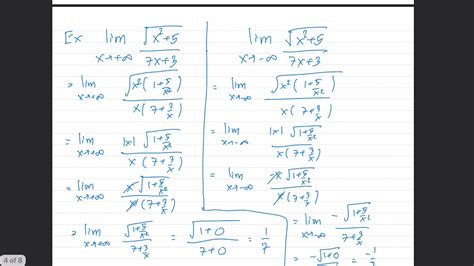 Ex lim x→+∞ √(x²+5) / (7x+3)
= lim x→+∞ √(x²(1+5/x²)) / (x(7+3/x))
= lim x→+∞ |x|√(1+5/x²) / (x(7+3/x))
= lim x→+∞ x√(1+5/x²) / (x(7+3/x))
= lim x→+∞ √(1+5/x²) / (7+3/x) = √(1+0) / (7+0) = 1/7
lim x→-∞ √(x²+5) / (7x+3)
= lim x→-∞ √(x²(1+5/x²)) / (x(7+3/x))
= lim x→-∞ |x|√(1+5/x²) / (x(7+3/x))
= lim x→-∞ -x√(1+5/x²) / (x(7+3/x))
= lim x→-∞ -√(1+5/x²) / (7+3/x)
= -√(1+0) = -1
4 of 8